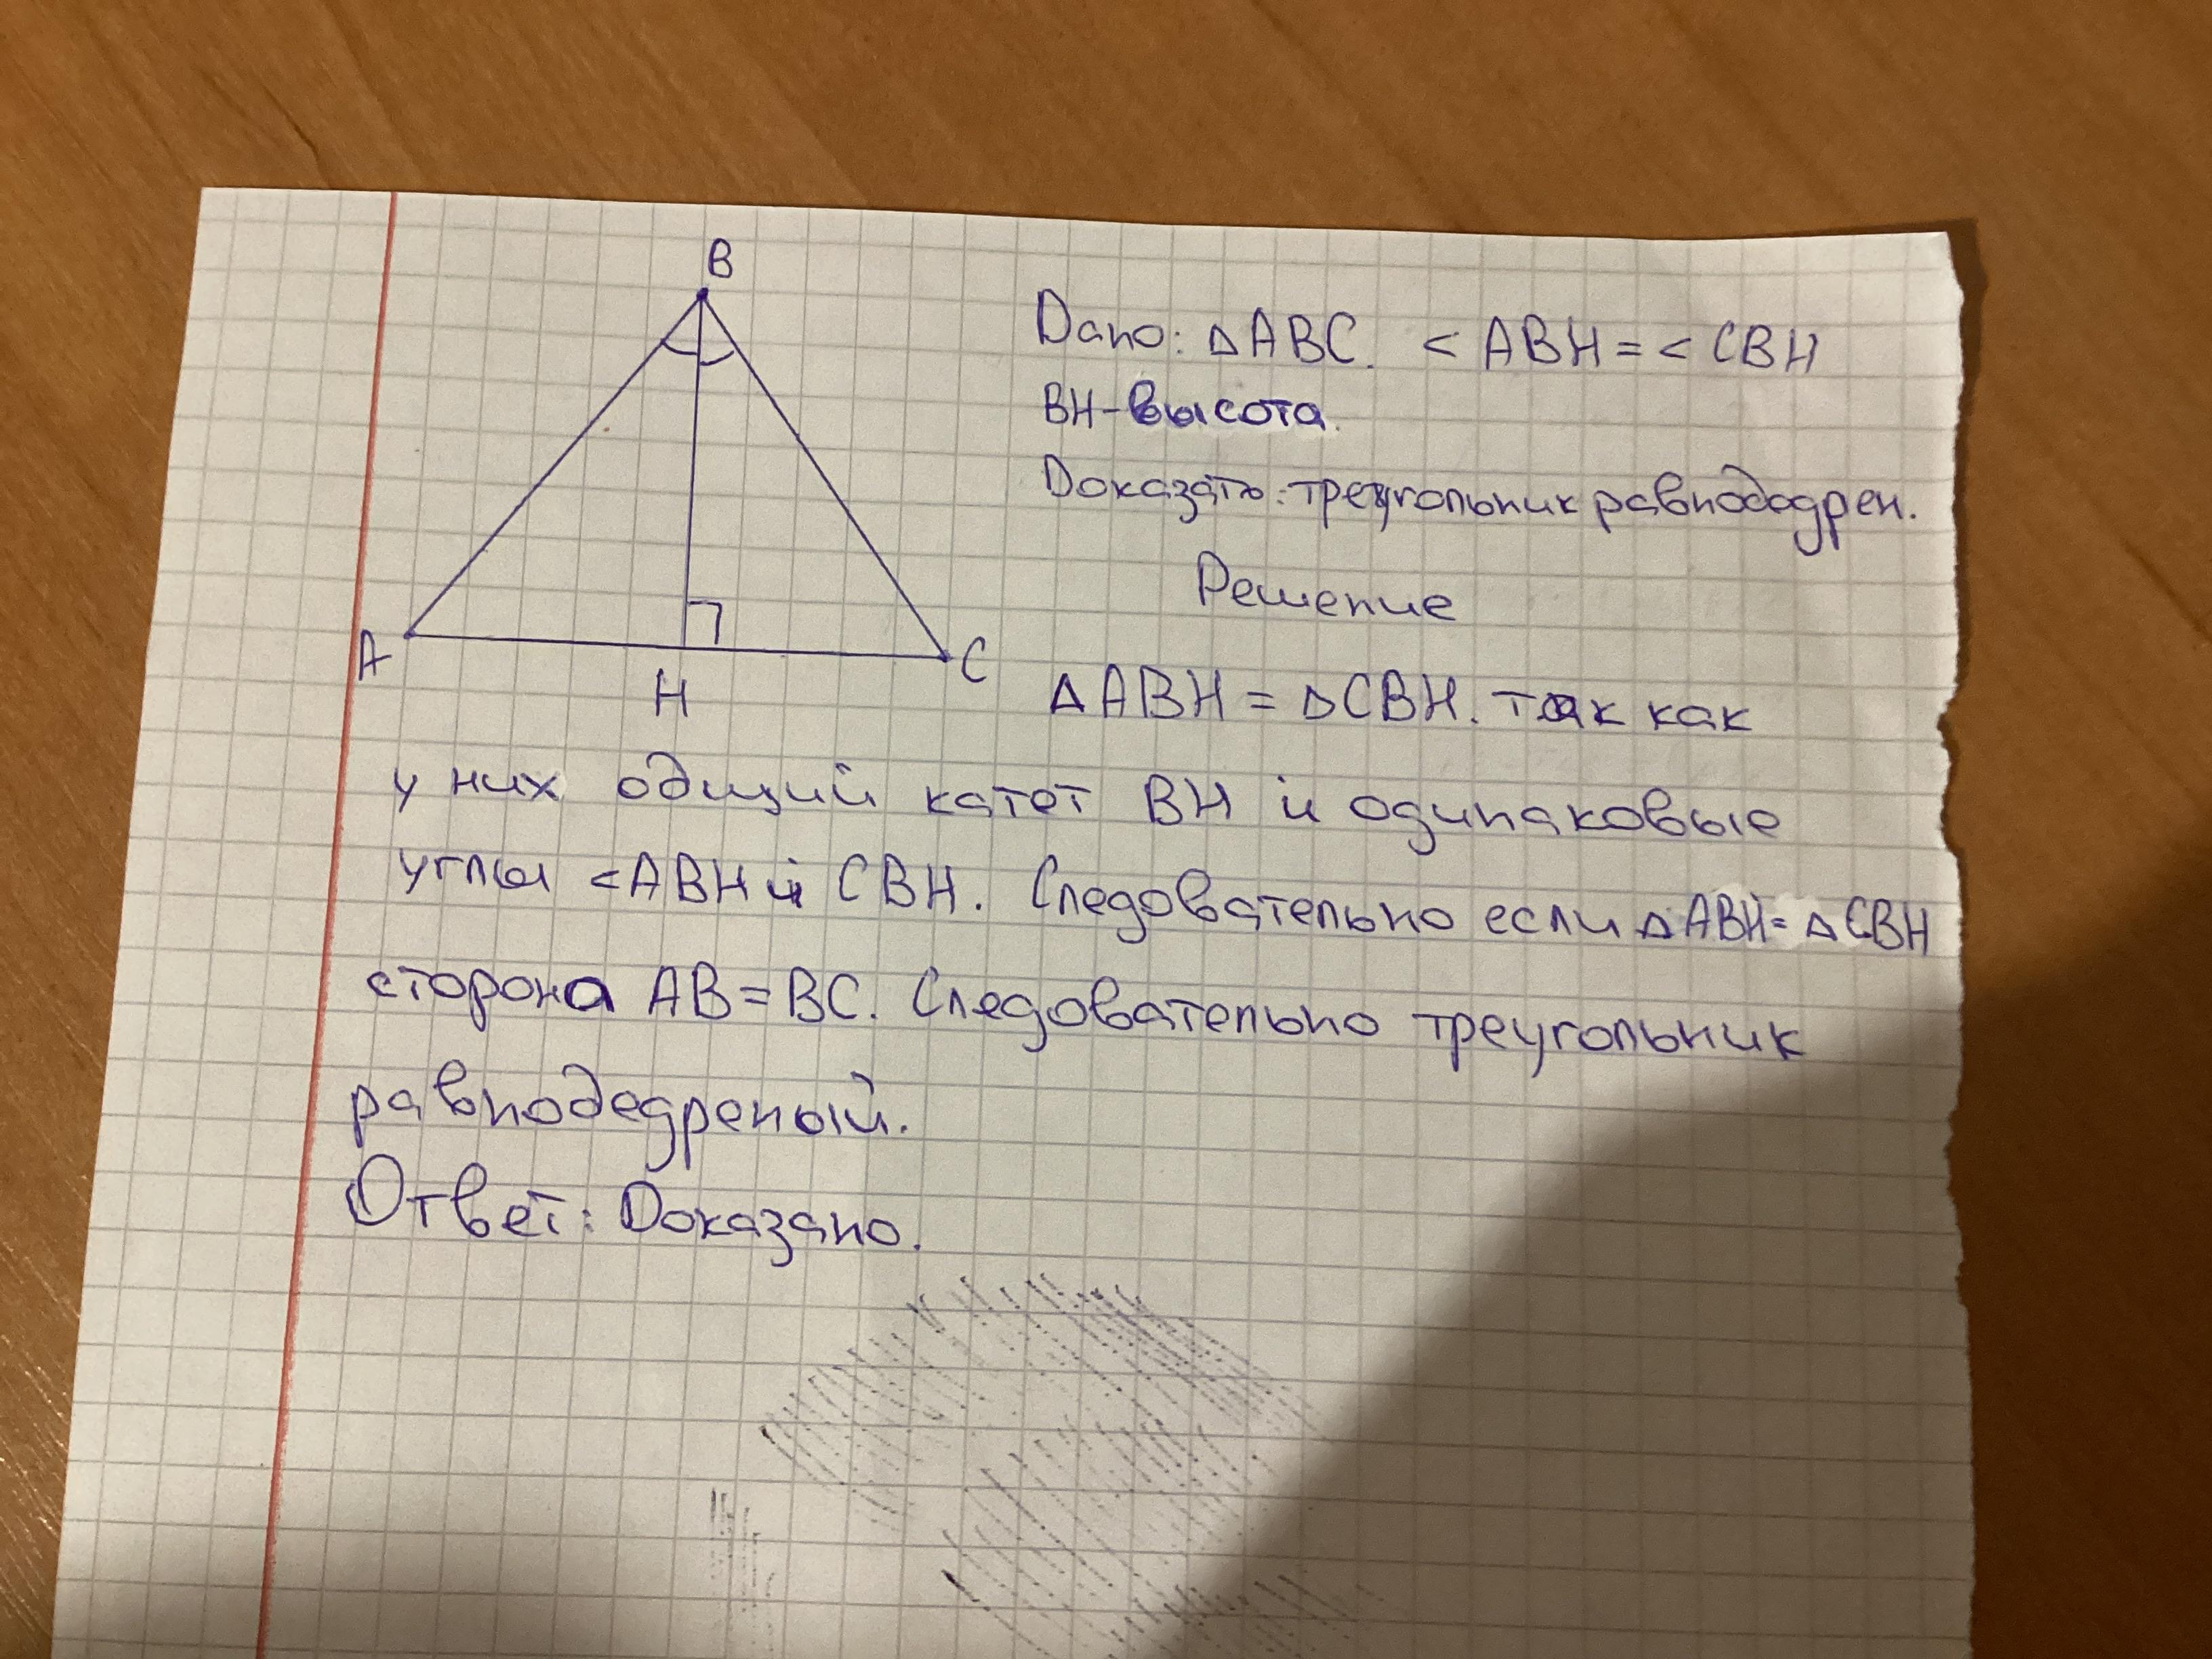 B
Дано: △ABC. < ABH = < CBH
BH-высота.
Доказать: треугольник равнобедрен.
Решение
A
H
C
△ABH = △CBH. так как
у них общий катет BH и одинаковые
углы <ABH и CBH. Следовательно если △ABH= △CBH
сторона AB=BC. Следовательно треугольник
равнобедреный.
Ответ: Доказано.